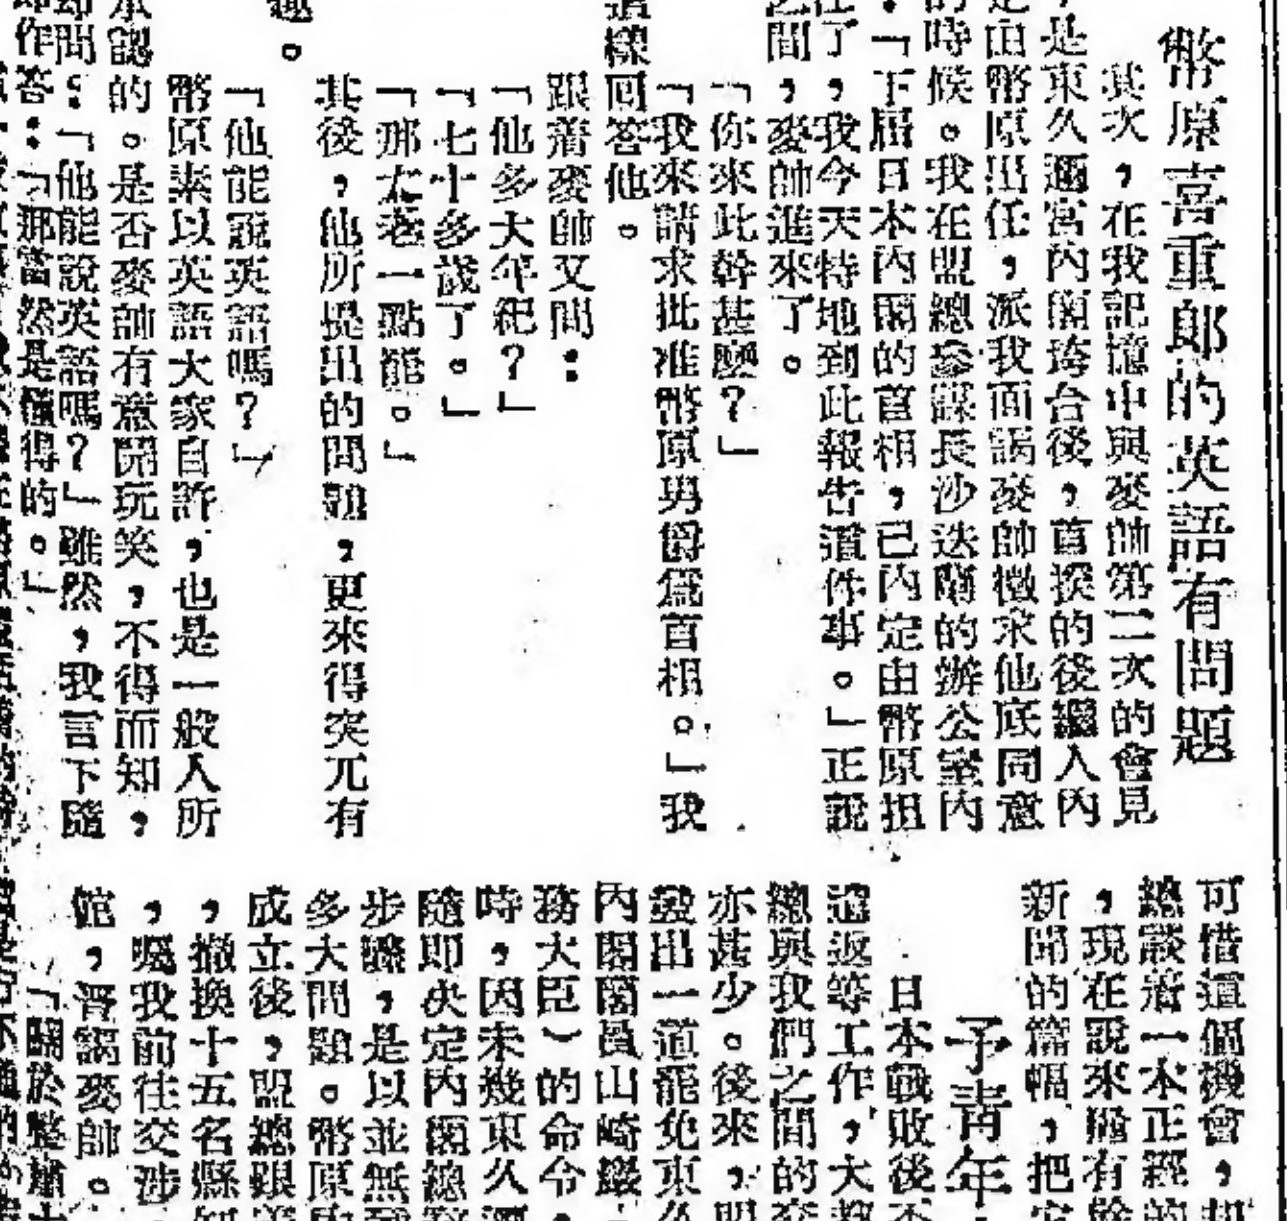 幣原喜重郎的英語有問題
其次，在我記憶中與麥帥第二次的會見
是東久邇宮內閣垮台後，首揆的後繼入內
由幣原出任，派我面謁麥帥徵求他底同意
的時候。我在盟總參謀長沙迭蘭的辦公室內
：「下屆日本內閣的首相，已內定由幣原担
任了，我今天特地到此報告這件事。」正說
之間，麥帥進來了。
「你來此幹甚麼？」
「我來請求批准幣原男爵爲首相。」我
這樣回答他。
跟着麥帥又問：
「他多大年紀？」
「七十多歲了。」
「那太老一點罷。」
其後，他所提出的問題，更來得突兀有
趣。
「他能說英語嗎？」
幣原素以英語大家自許，也是一般人所
承認的。是否麥帥有意開玩笑，不得而知，
却問：「他能說英語嗎？」雖然，我言下隨
即作答：「那當然是懂得的。」
可惜這個機會，却
總談着一本正經的
，現在說來頗有
新聞的篇幅，把
予青年
日本戰敗後不
遣返等工作，大
總與我們之間的
亦甚少。後來，
發出一道罷免東久
內閣閣員山崎巖
務大臣）的命令，
時，因未幾東久邇
隨即決定內閣總
步驟，是以並無
多大問題。幣原內
成立後，盟總
，撤換十五名縣知
，囑我前往交涉
館，晋謁麥帥。
「關於整肅